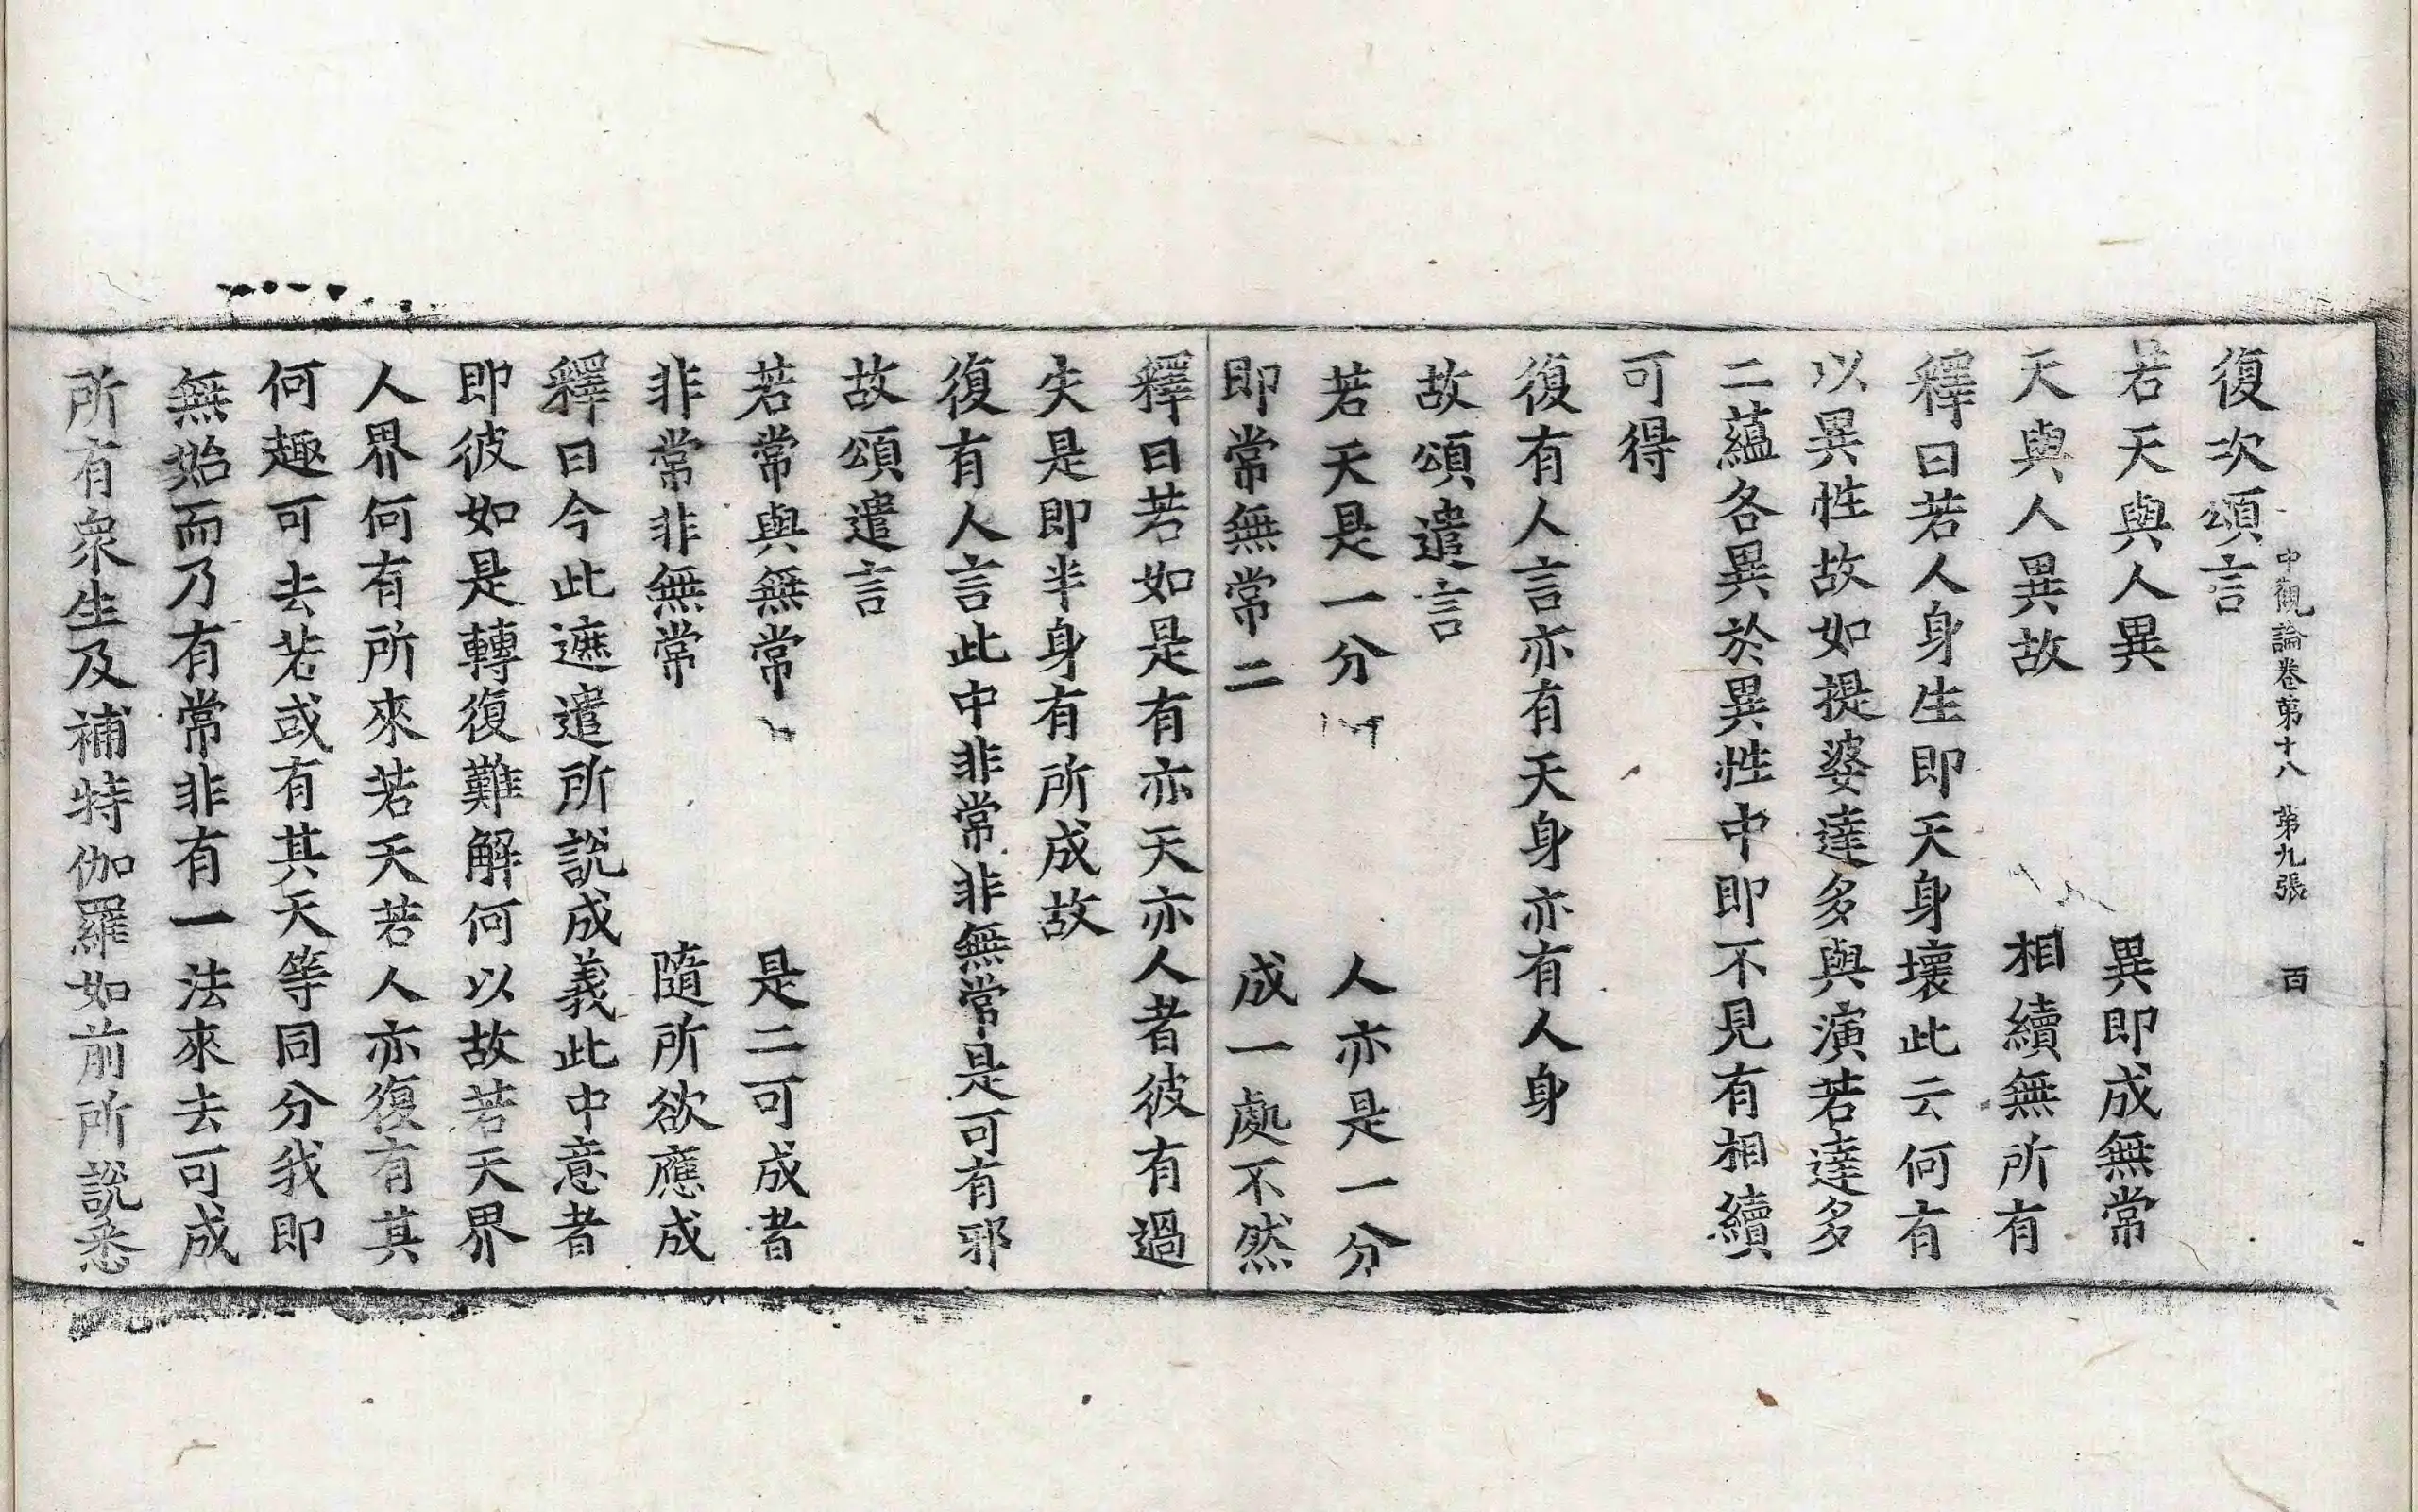 復次頌言
中觀論卷第十八 第九張 百
若天與人異 異即成無常
天與人異故 相續無所有
釋曰若人身生即天身壞此云何有
以異性故如提婆達多與演若達多
二蘊各異於異性中即不見有相續
可得
復有人言亦有天身亦有人身
故頌遣言
若天是一分 人亦是一分
即常無常二 成一處不然
釋曰若如是有亦天亦人者彼有過
失是即半身有所成故
復有人言此中非常非無常是可有邪
故頌遣言
若常與無常 是二可成者
非常非無常 隨所欲應成
釋曰今此遮遣所說成義此中意者
即彼如是轉復難解何以故若天界
人界何有所來若天若人亦復有其
何趣可去若或有其天等同分我即
無始而乃有常非有一法來去可成
所有衆生及補特伽羅如前所說悉